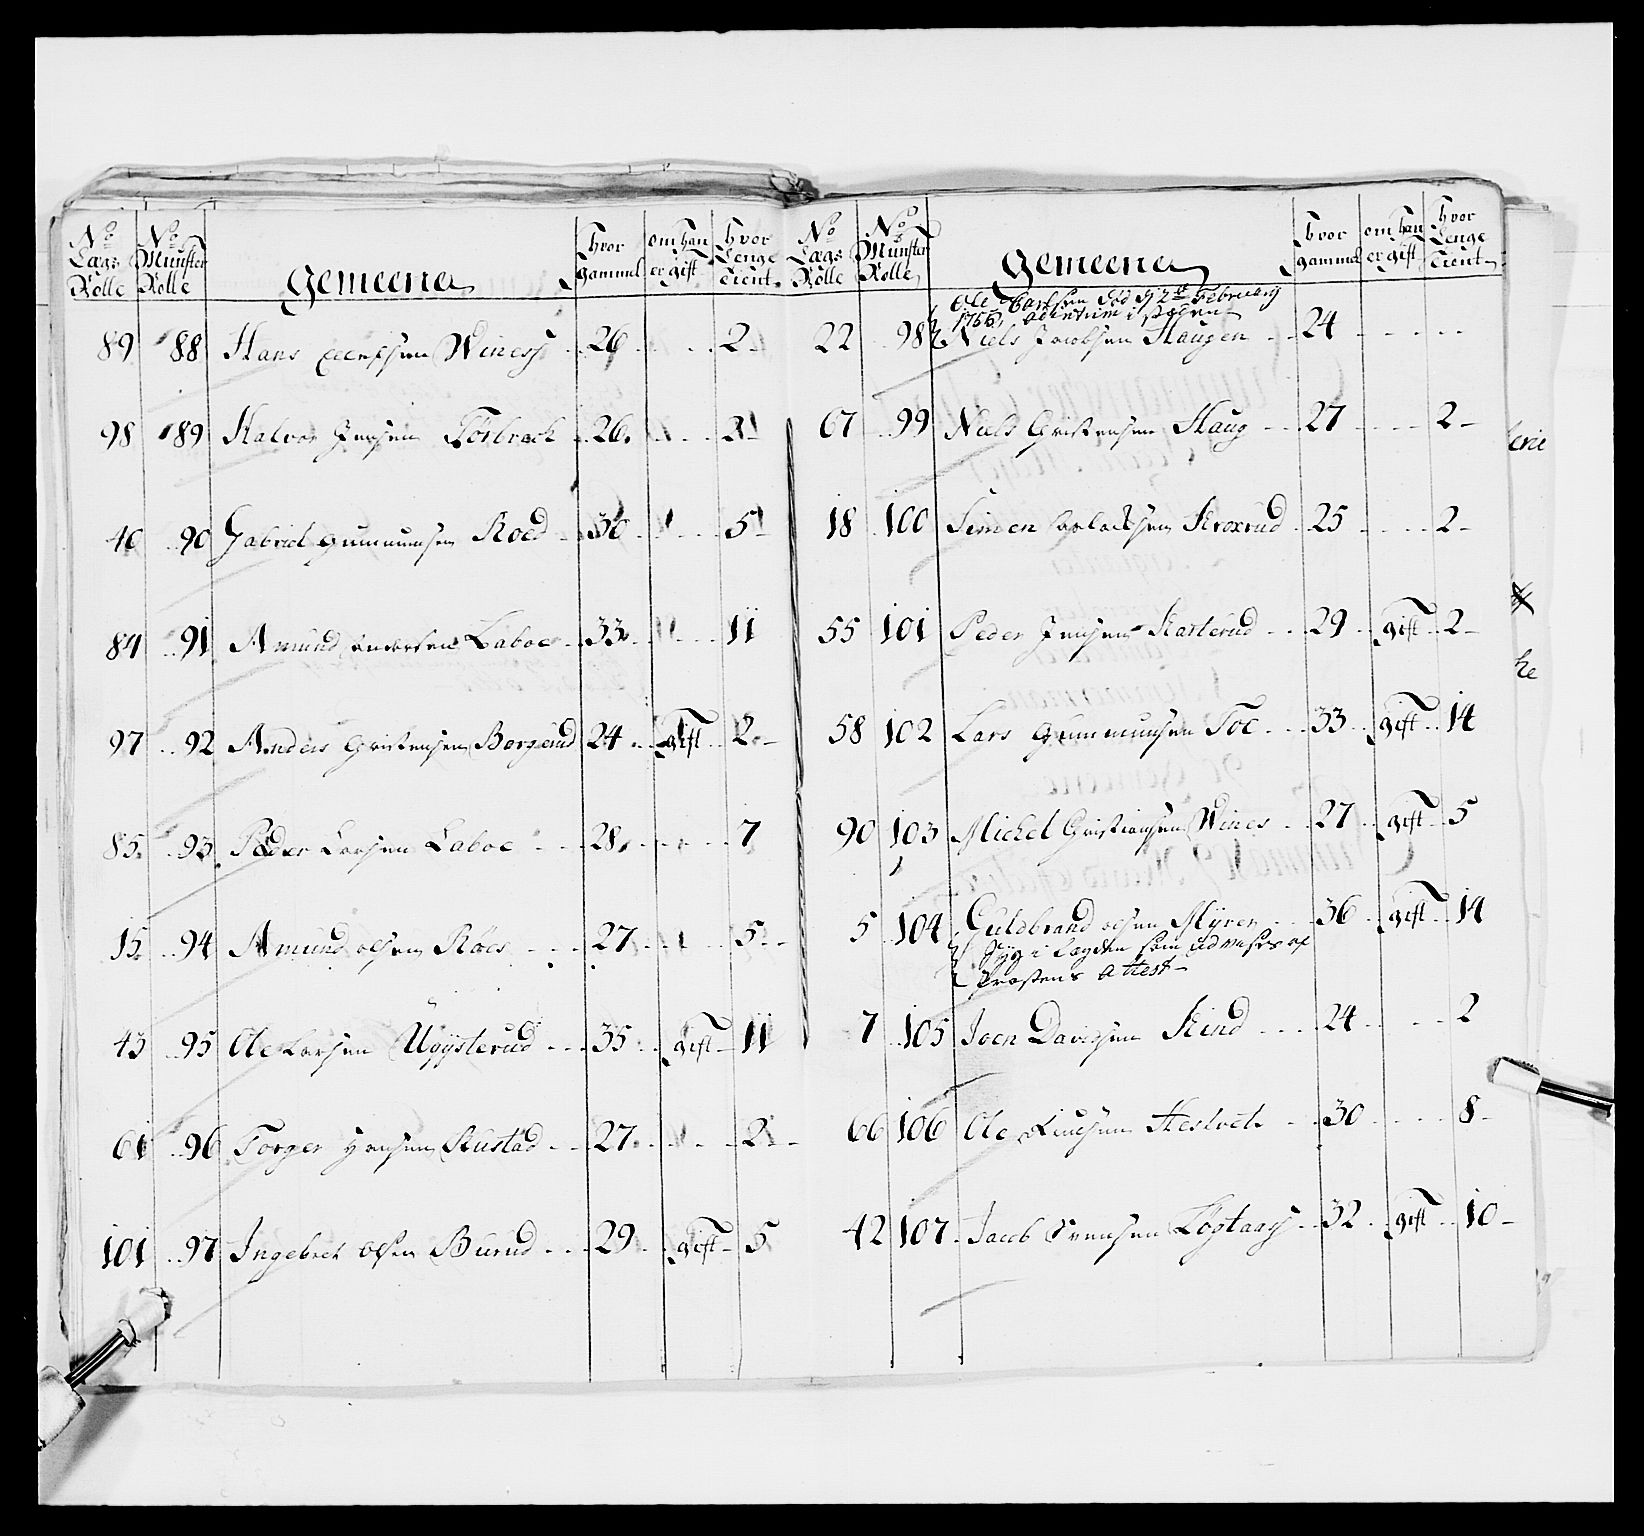 No Lægs Rolle | No Munster Rolle | Gemeene | hvor gammel | om han er gift | hvor Lenge Tient
89 88 Hans Winess 26 2
98 89 Halvor Jensen Fosbrech 26 2
40 90 Gabriel Gunnunsen Roed 30 5
84 91 Amund Andersen Laboe 33 11
97 92 Anders Christensen Bergerud 24 gift 2
85 93 Peder Larsen Laboe 28 7
15 94 Amund olsen Roes 27 5
43 95 Ole Larsen 35 gift 11
61 96 Torger Hansen Rustad 27 2
101 97 Ingebret olsen Burud 29 gift 5
No Lægs Rolle | No Munster Rolle | Gemeene | hvor gammel | om han er gift | hvor Lenge Tient
Ole Carlsen død d 2de February
1766, i
22 98 Niels Jacobsen Haugen 24
67 99 Niels Christensen Haug 27 2
18 100 Simen Kroxrud 25 2
55 101 Peder Jensen Karterud 29 gift 2
58 102 Lars Gunnunsen Toe 33 gift 14
90 103 Michel Christiansen Wines 27 gift 5
5 104 Guldbrand olsen Myren 36 gift 14
Syg i Lægden som udvises af
Præstens Attest
7 105 Joen Davidsen Kind 24 2
66 106 Ole Hestvet 30 8
42 107 Jacob Svensen 32 gift 10